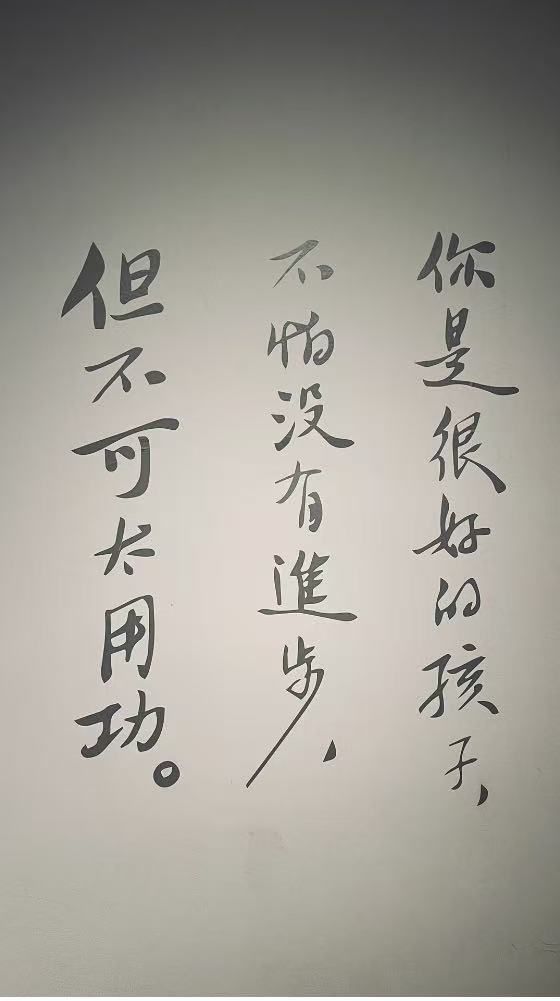 你是很好的孩子，
不怕没有進步，
但不可太用功。